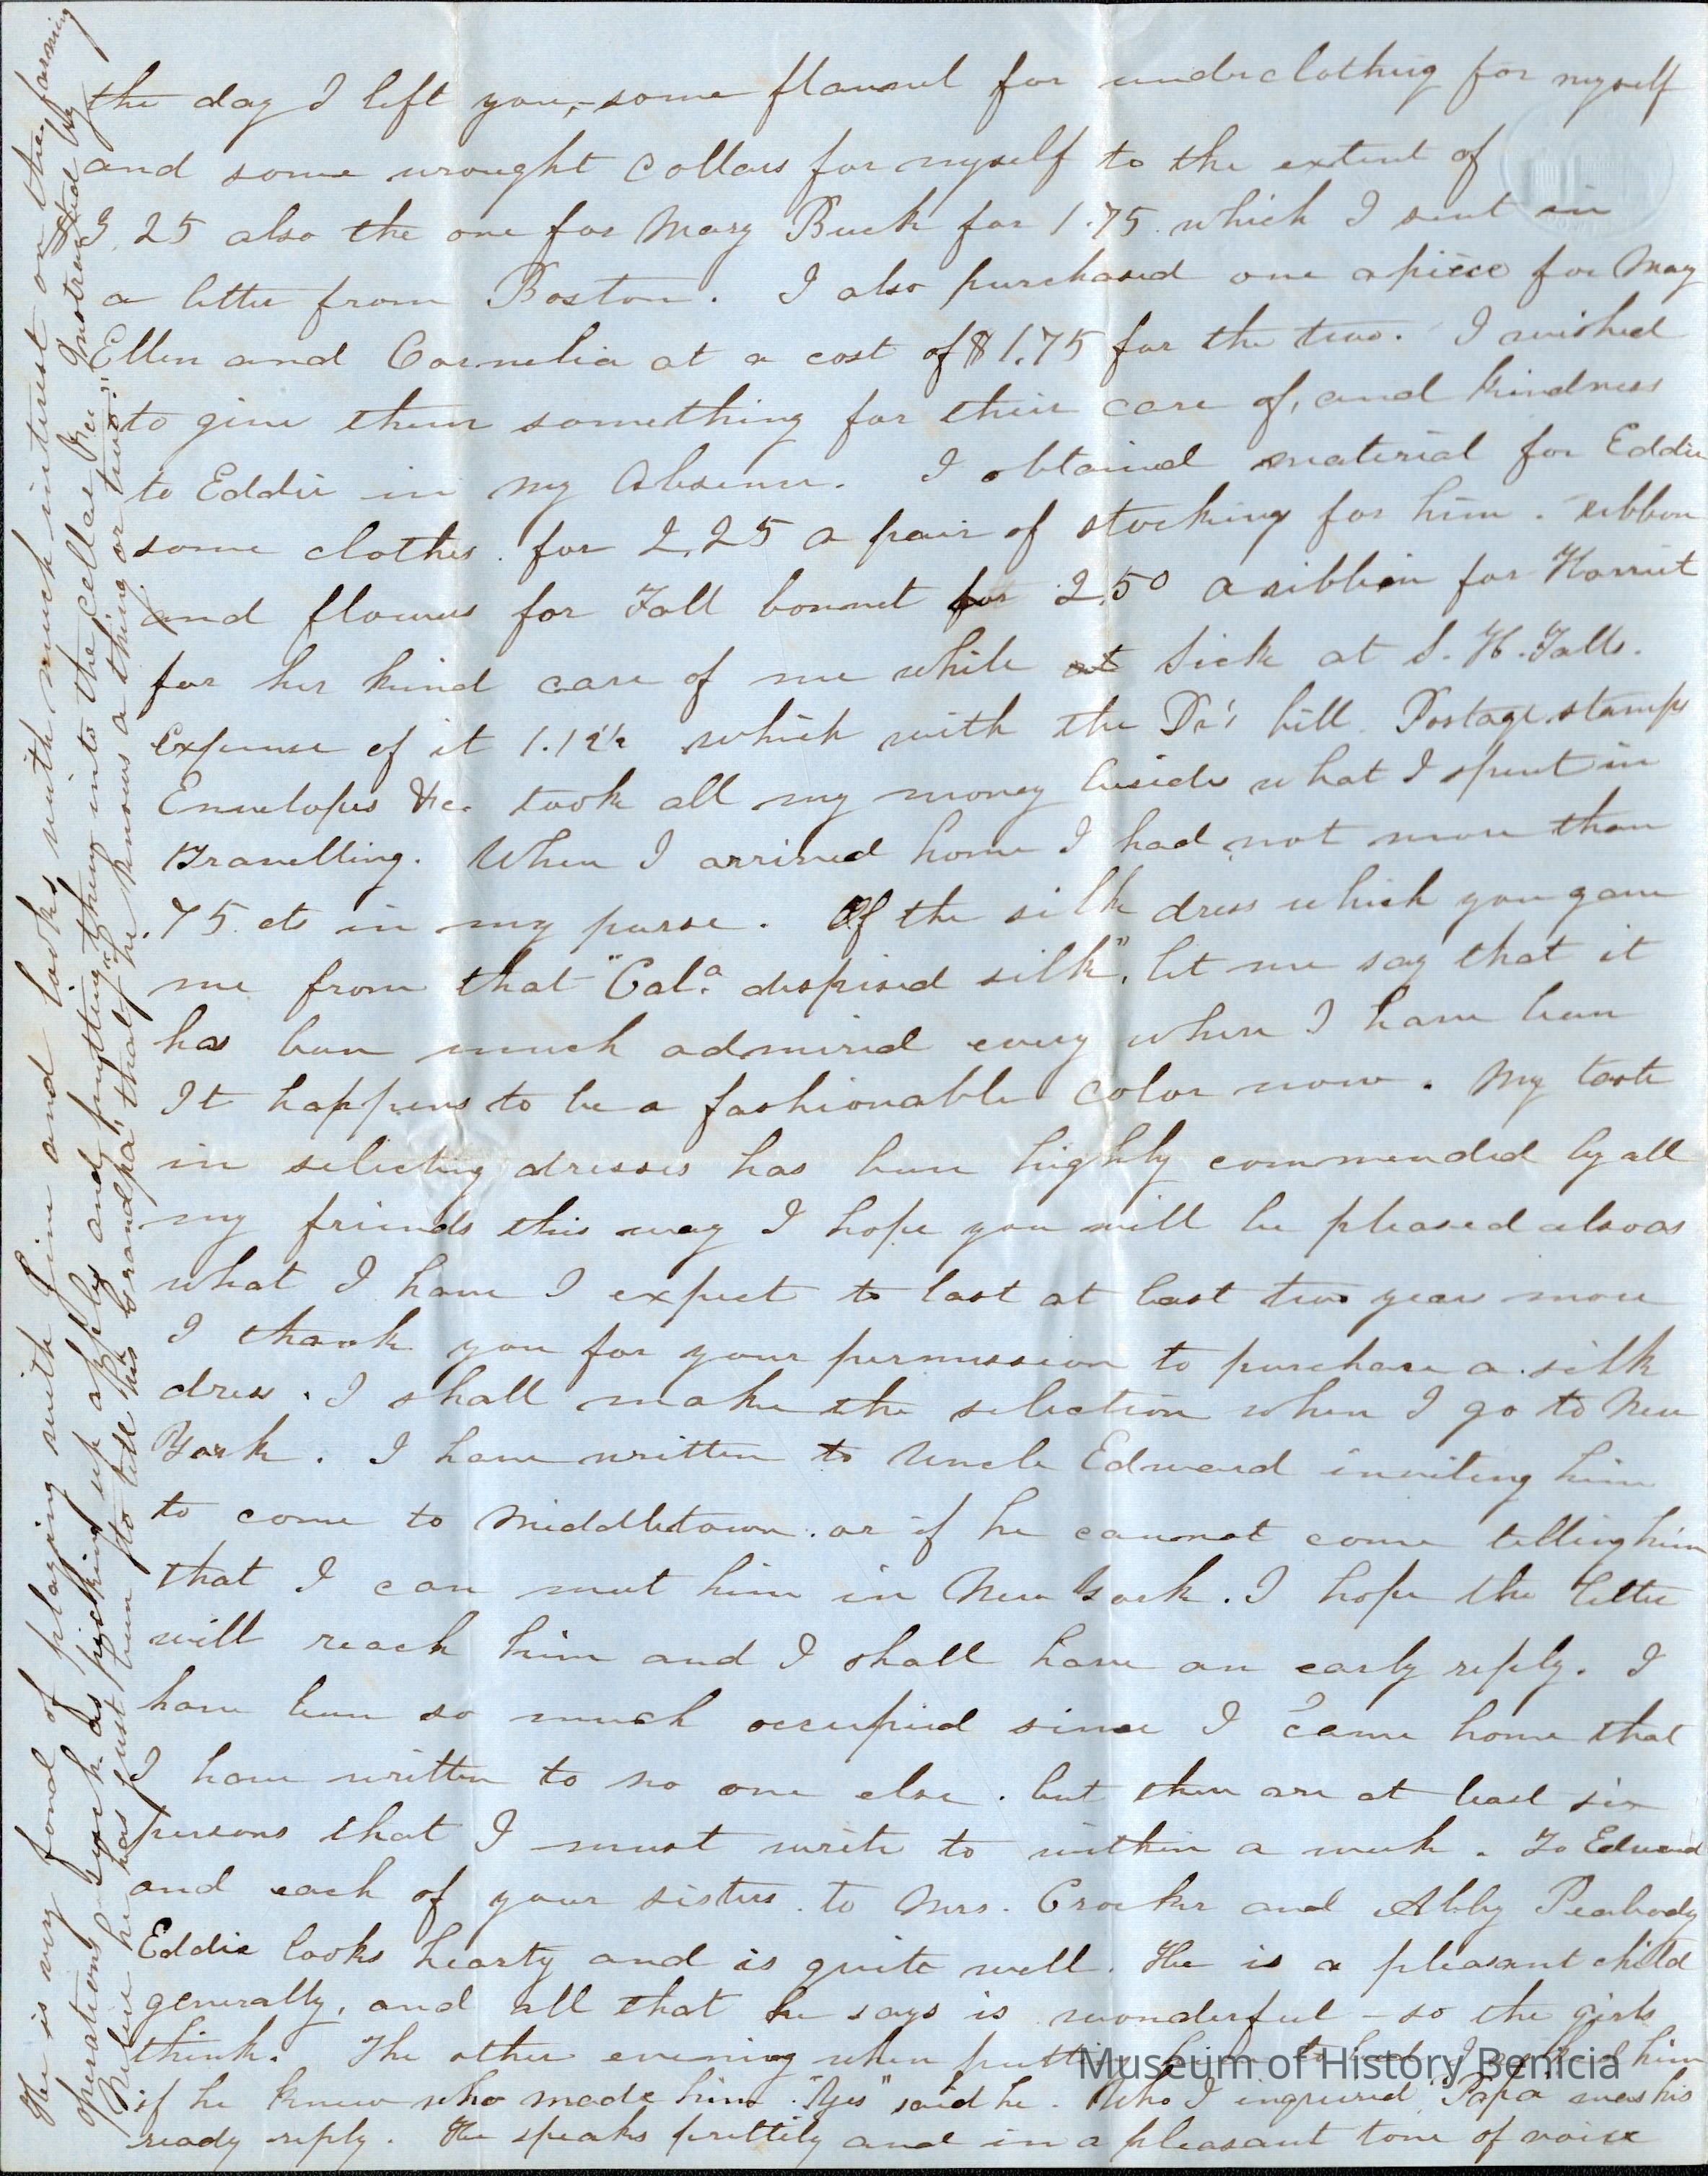 the day I left you,-some flannel for underclothing for myself
and some wrought collars for myself to the extent of
$3.25 also the one for Mary Buck for 1.75. which I sent in
a letter from Boston. I also purchased one apiece for Mary
Ellen and Cornelia at a cost of $1.75 for the two. I wished
to give them something for their care of, and kindness
to Eddie in my absence. I obtained material for Eddie
some clothes. for 2.25 a pair of stocking for him. ribbon
and flowers for Fall bonnet for 2.50 a ribbon for Harriet
for her kind care of me while sick at S. H. Falls.
Expense of it 1.12½ which with the Dr's bill. Postage stamps
Envelopes &c. took all my money beside what I spent in
Travelling. When I arrived home I had not more than
.75. cts in my purse. Of the silk dress which you gave
me from that "Cal.a despised silk", let me say that it
has been much admired every where I have been
It happens to be a fashionable color now. My taste
in selecting dresses has been highly commended by all
my friends this way I hope you will be pleased also as
what I have I expect to last at least two years more
I thank you for your permission to purchase a silk
dress. I shall make the selection when I go to New
York. I have written to Uncle Edward inviting him
to come to Middletown. or if he cannot come telling him
that I can meet him in New York. I hope the letter
will reach him and I shall have an early reply. I
have been so much occupied since I came home that
I have written to no one else. but there are at least six
persons that I must write to within a week. To Edward
and each of your sisters. to Mrs. Crocker and Abby Peabody
Eddie looks hearty and is quite well. He is a pleasant child
generally, and all that he says is wonderful - so the girls
think. The other evening when putting him to bed I asked him
if he knew who made him. "Yes" said he. Who I enquired "Papa" was his
ready reply. He speaks prettily and in a pleasant tone of voice
He is very fond of playing with Jim and looks with much interest on the farming
operations such as picking up apples and putting them into the cellar &c
Believe he has just been to tell his Grandpa" that "he knows a thing or two."
Museum of History Benicia